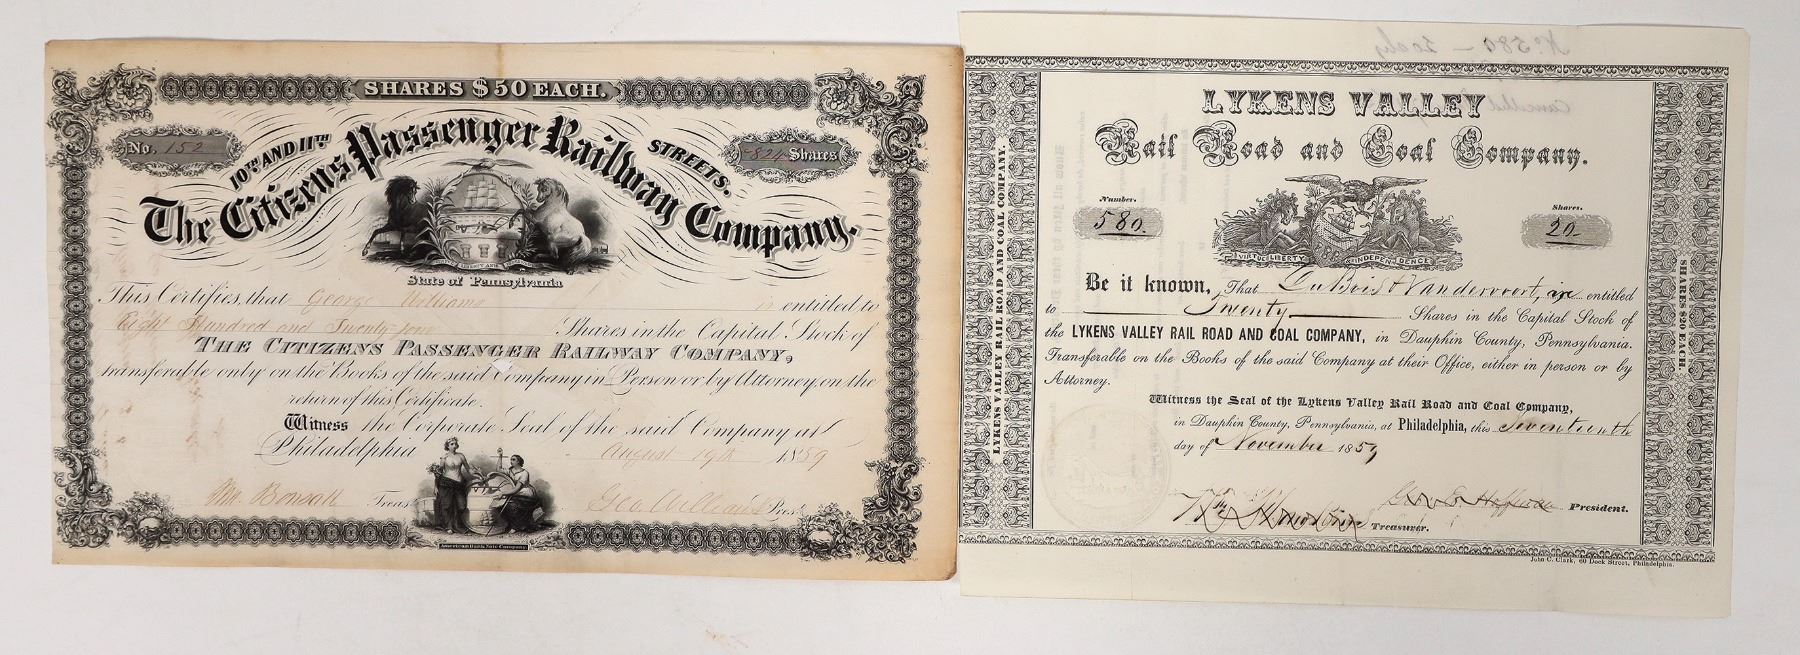 SHARES $50 EACH.
No. 152
824 Shares
10TH AND 11TH STREETS.
The Citizens Passenger Railway Company.
State of Pennsylvania
This Certifies that George Williams is entitled to
Eight Hundred and Twenty four Shares in the Capital Stock of
THE CITIZENS PASSENGER RAILWAY COMPANY,
transferable only on the Books of the said Company in Person or by Attorney, on the
return of this Certificate.
Witness the Corporate Seal of the said Company at
Philadelphia August 19th 1859
Bonsall Treas
Geo. Williams Pres
American Bank Note Company
No. 580 –
Cancelled
LYKENS VALLEY
Rail Road and Coal Company.
Number.
580.
Shares.
20
VIRTUE LIBERTY & INDEPENDENCE
Be it known, That DuBois & Vandervoort, in entitled
to Twenty Shares in the Capital Stock of
the LYKENS VALLEY RAIL ROAD AND COAL COMPANY, in Dauphin County, Pennsylvania.
Transferable on the Books of the said Company at their Office, either in person or by
Attorney.
Witness the Seal of the Lykens Valley Rail Road and Coal Company,
in Dauphin County, Pennsylvania, at Philadelphia, this Seventeenth
day of November 1859
President.
Treasurer.
LYKENS VALLEY RAIL ROAD AND COAL COMPANY.
SHARES $20 EACH.
John C. Clark, 60 Dock Street, Philadelphia.